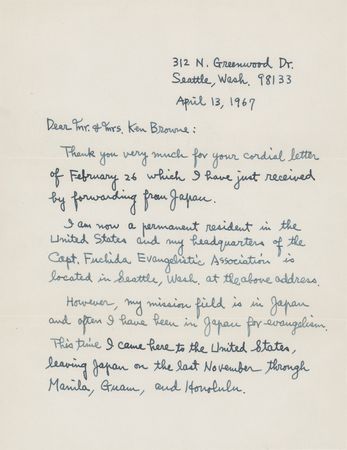 312 N. Greenwood Dr.
Seattle, Wash. 98133
April 13, 1967
Dear Mr. & Mrs. Ken Browne:
Thank you very much for your cordial letter
of February 26 which I have just received
by forwarding from Japan.
I am now a permanent resident in the
United States and my headquarters of the
Capt. Fuchida Evangelistic Association is
located in Seattle, Wash. at the above address.
However, my mission field is in Japan
and often I have been in Japan for evangelism.
This time I came here to the United States,
leaving Japan on the last November through
Manila, Guam, and Honolulu.